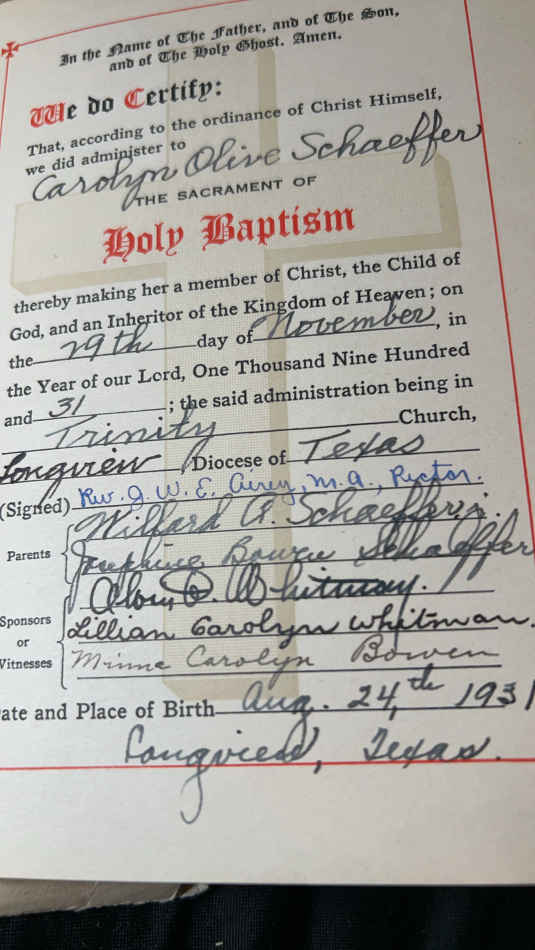 In the Name of The Father, and of The Son,
and of The Holy Ghost. Amen.
We do Certify:
That, according to the ordinance of Christ Himself,
we did administer to
Carolyn Olive Schaeffer
THE SACRAMENT OF
Holy Baptism
thereby making her a member of Christ, the Child of
God, and an Inheritor of the Kingdom of Heaven; on
the 29th day of November, in
the Year of our Lord, One Thousand Nine Hundred
and 31; the said administration being in
Trinity Church,
Longview, Diocese of Texas
(Signed) Rev. J. W. E. Airey, M.A., Rector.
Willard A. Schaeffer, Jr.
Parents
Josephine Bowen Schaeffer
O. Whitman.
Sponsors
Lillian Carolyn Whitman.
or
Witnesses
Minna Carolyn Bowen
ate and Place of Birth Aug. 24th, 1931
Longview, Texas.